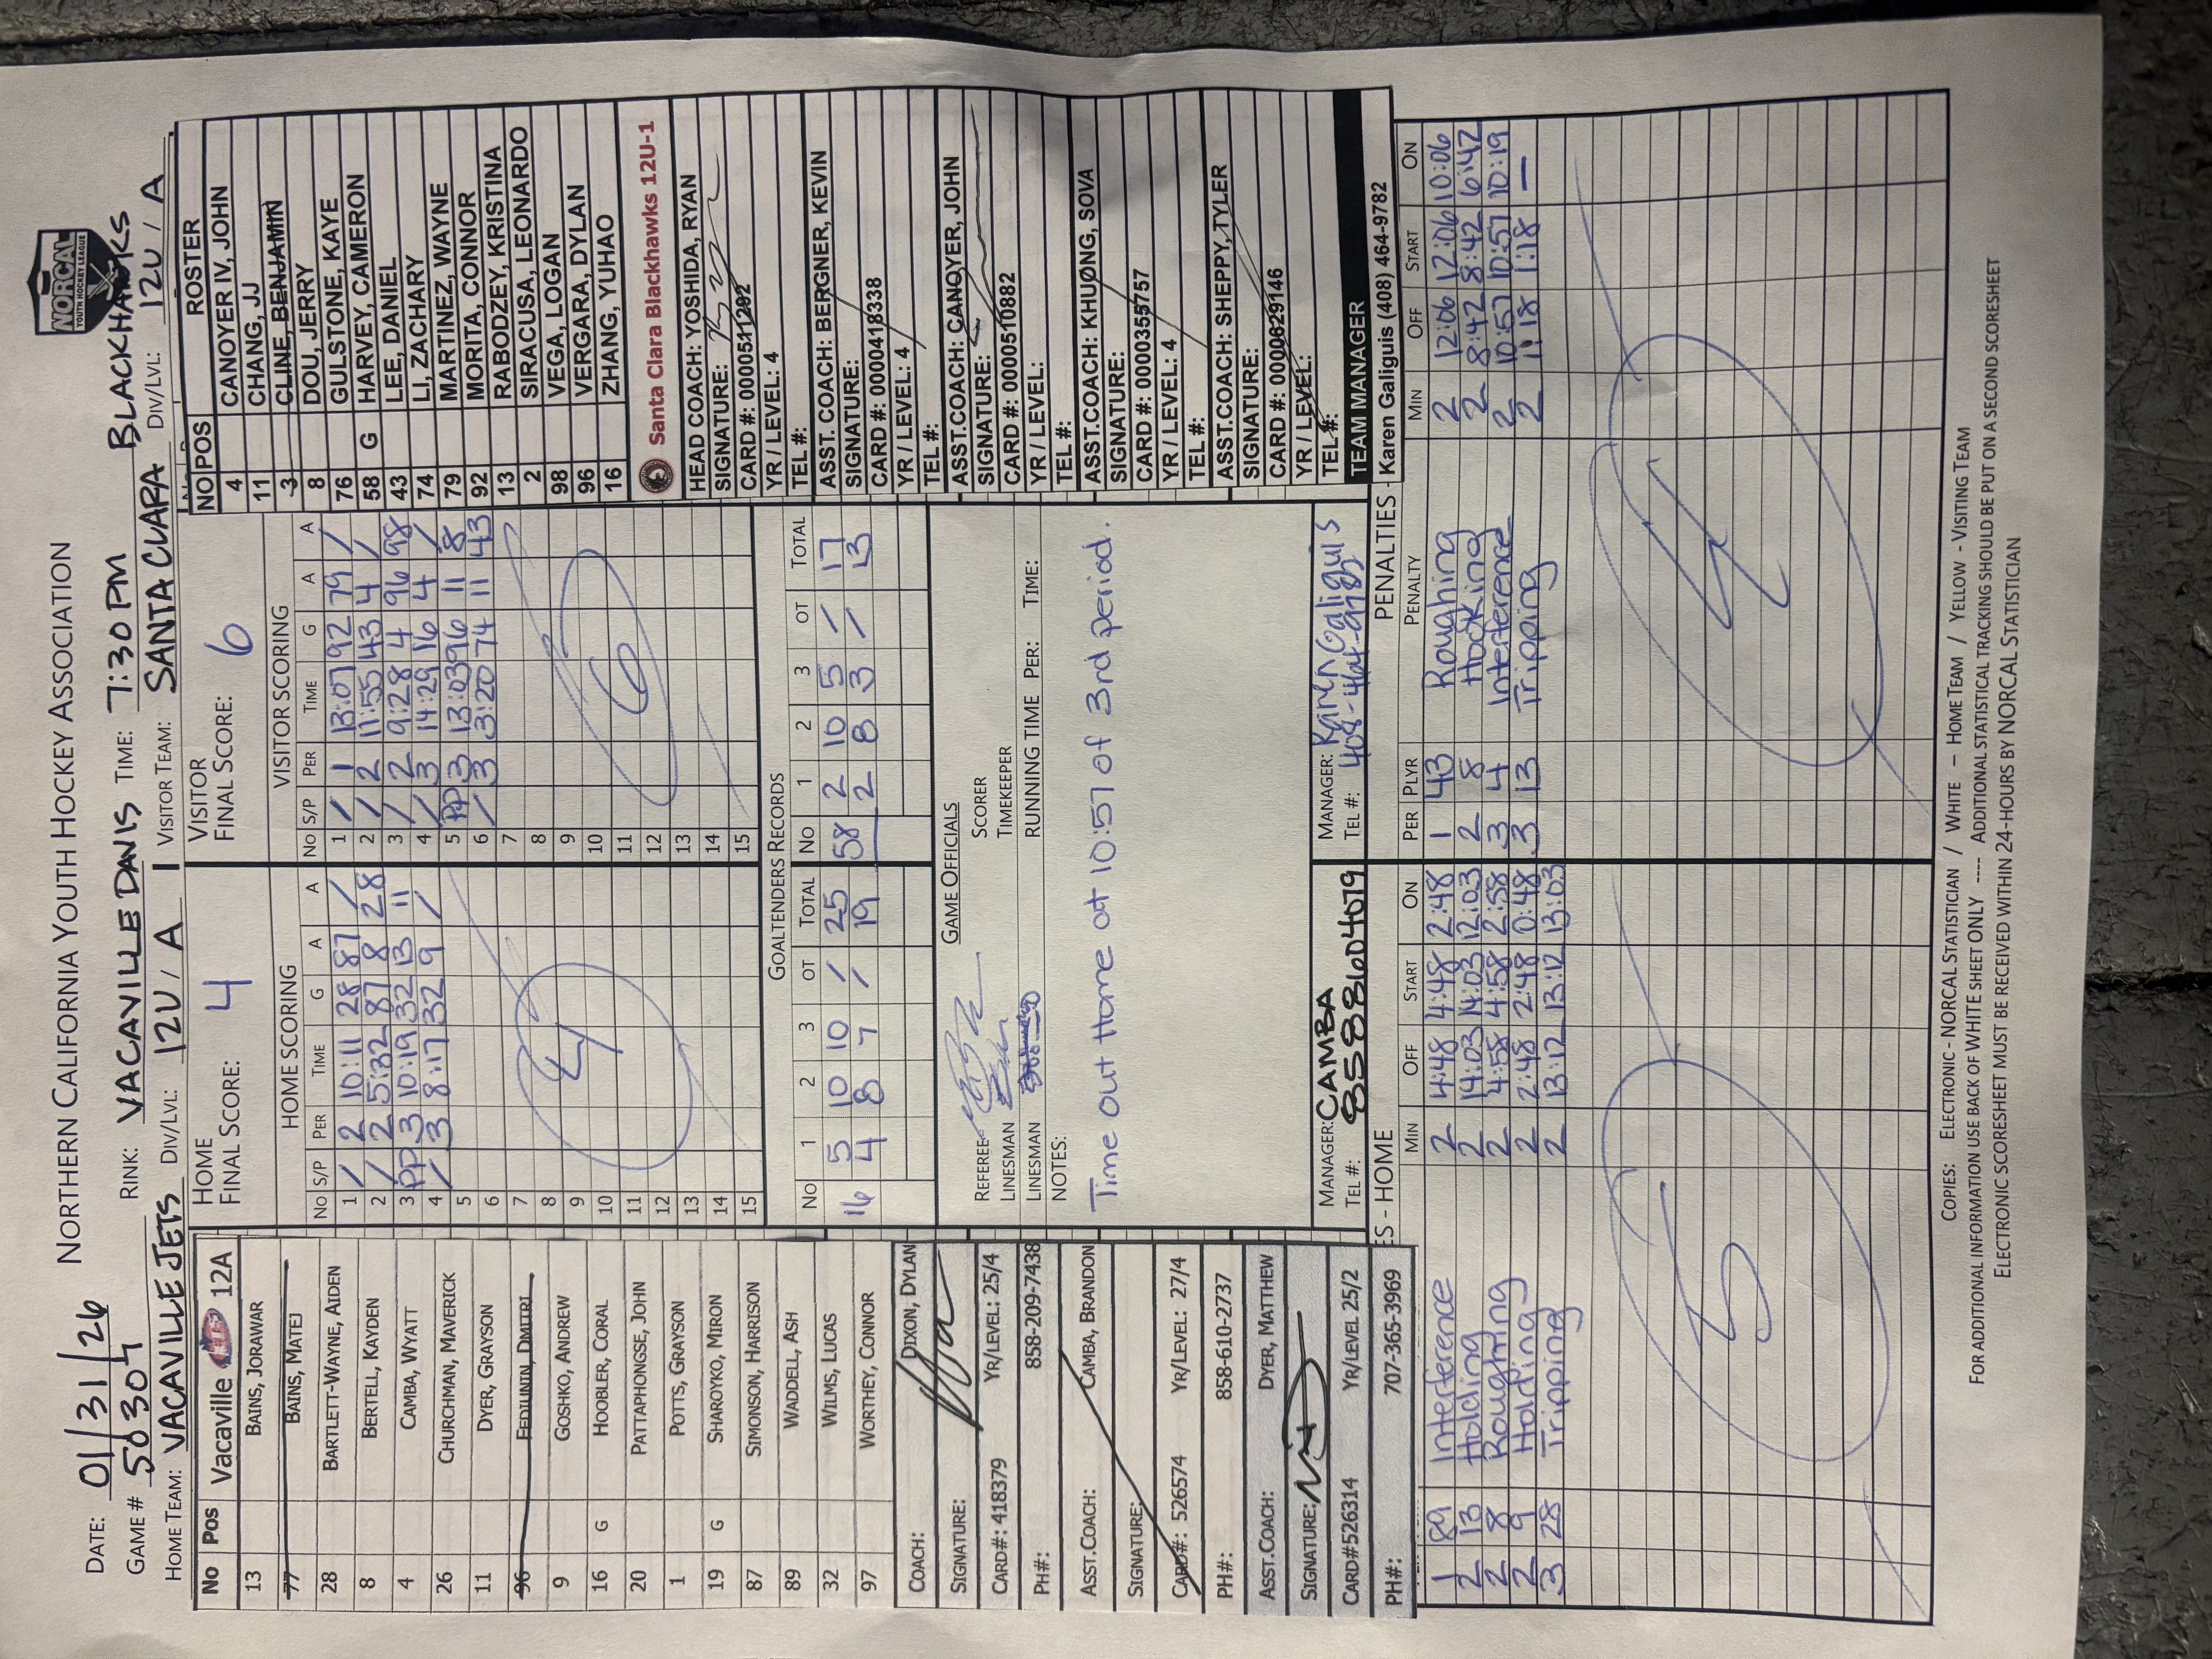 NORTHERN CALIFORNIA YOUTH HOCKEY ASSOCIATION
NORCAL
YOUTH HOCKEY LEAGUE
DATE: 01/31/26
GAME # 50304 RINK: VACAVILLE DAVIS TIME: 7:30 PM BLACKHAWKS
HOME TEAM: VACAVILLE JETS DIV/LVL: 12U / A VISITOR TEAM: SANTA CLARA DIV/LVL: 12U / A
No Pos Vacaville JETS 12A
13 BAINS, JORAWAR
77 BAINS, MATEJ
28 BARTLETT-WAYNE, AIDEN
8 BERTELL, KAYDEN
4 CAMBA, WYATT
26 CHURCHMAN, MAVERICK
11 DYER, GRAYSON
96 FEDIUNIN, DMITRI
9 GOSHKO, ANDREW
16 G HOOBLER, CORAL
20 PATTAPHONGSE, JOHN
1 POTTS, GRAYSON
19 G SHAROYKO, MIRON
87 SIMONSON, HARRISON
89 WADDELL, ASH
32 WILMS, LUCAS
97 WORTHEY, CONNOR
COACH: DIXON, DYLAN
SIGNATURE:
CARD#: 418379 YR/LEVEL: 25/4
PH#: 858-209-7438
ASST.COACH: CAMBA, BRANDON
SIGNATURE:
CARD#: 526574 YR/LEVEL: 27/4
PH#: 858-610-2737
ASST.COACH: DYER, MATTHEW
SIGNATURE:
CARD#526314 YR/LEVEL 25/2
PH#: 707-365-3969
HOME
FINAL SCORE: 4
HOME SCORING
NO S/P PER TIME G A A
1 / 2 10:11 28 87 /
2 / 2 5:32 87 8 28
3 PP 3 10:19 32 13 11
4 / 3 8:17 32 9 /
5
6
7
8
9
10
11
12
13
14
15
4
VISITOR
FINAL SCORE: 6
VISITOR SCORING
NO S/P PER TIME G A A
1 / 1 13:07 92 79 /
2 / 2 11:55 43 4 /
3 / 2 9:28 4 96 98
4 / 3 14:29 16 4 /
5 PP 3 13:03 96 11 8
6 / 3 3:20 74 11 43
7
8
9
10
11
12
13
14
15
6
GOALTENDERS RECORDS
NO 1 2 3 OT TOTAL NO 1 2 3 OT TOTAL
16 5 10 10 / 25 58 2 10 5 / 17
4 8 7 19 2 8 3 / 13
GAME OFFICIALS
REFEREE SCORER
LINESMAN TIMEKEEPER
LINESMAN RUNNING TIME PER: TIME:
NOTES:
Time out Home at 10:57 of 3rd period.
MANAGER: CAMBA MANAGER: Karen Galiguis
TEL #: 8588604079 TEL #:
NO POS ROSTER
4 CANOYER IV, JOHN
11 CHANG, JJ
3 CLINE, BENJAMIN
8 DOU, JERRY
76 GULSTONE, KAYE
58 G HARVEY, CAMERON
43 LEE, DANIEL
74 LI, ZACHARY
79 MARTINEZ, WAYNE
92 MORITA, CONNOR
13 RABODZEY, KRISTINA
2 SIRACUSA, LEONARDO
98 VEGA, LOGAN
96 VERGARA, DYLAN
16 ZHANG, YUHAO
Santa Clara Blackhawks 12U-1
HEAD COACH: YOSHIDA, RYAN
SIGNATURE:
CARD #: 0000511292
YR / LEVEL: 4
TEL #:
ASST. COACH: BERGNER, KEVIN
SIGNATURE:
CARD #: 0000418338
YR / LEVEL: 4
TEL #:
ASST.COACH: CANOYER, JOHN
SIGNATURE:
CARD #: 0000510882
YR / LEVEL:
TEL #:
ASST.COACH: KHUONG, SOVA
SIGNATURE:
CARD #: 0000355757
YR / LEVEL: 4
TEL #:
ASST.COACH: SHEPPY, TYLER
SIGNATURE:
CARD #: 0000629146
YR / LEVEL:
TEL #:
TEAM MANAGER
Karen Galiguis (408) 464-9782
ES - HOME
MIN OFF START ON
1 89 Interference 2 4:48 4:48 2:48
2 13 Holding 2 14:03 14:03 12:03
2 8 Roughing 2 4:58 4:58 2:58
2 9 Holding 2 2:48 2:48 0:48
3 28 Tripping 2 13:12 13:12 13:03
5
PENALTIES -
PER PLYR PENALTY MIN OFF START ON
1 43 Roughing 2 12:06 12:06 10:06
2 8 Hooking 2 8:42 8:42 6:42
3 4 Interference 2 10:57 10:57 10:19
3 13 Tripping 2 1:18 1:18 —
4
COPIES: ELECTRONIC - NORCAL STATISTICIAN / WHITE – HOME TEAM / YELLOW - VISITING TEAM
FOR ADDITIONAL INFORMATION USE BACK OF WHITE SHEET ONLY ---- ADDITIONAL STATISTICAL TRACKING SHOULD BE PUT ON A SECOND SCORESHEET
ELECTRONIC SCORESHEET MUST BE RECEIVED WITHIN 24-HOURS BY NORCAL STATISTICIAN